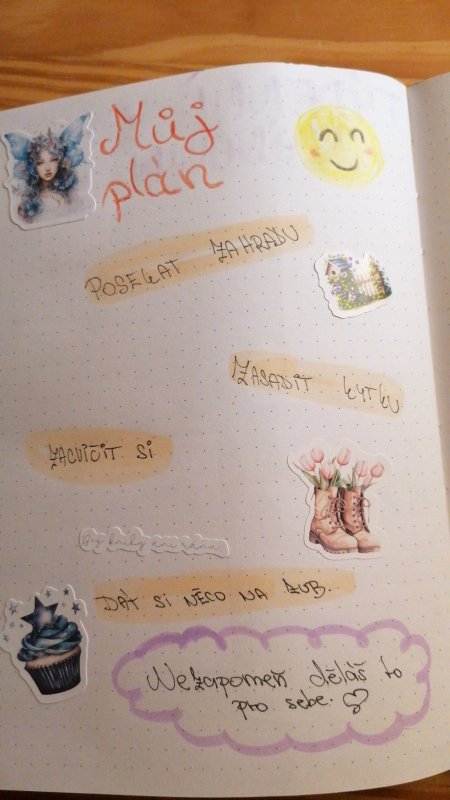 Můj
plán
POSEKAT ZAHRADU
ZASADIT KYTKU
ZACVIČIT SI
DÁT SI NĚCO NA ZUB.
Nezapomeň děláš to
pro sebe.